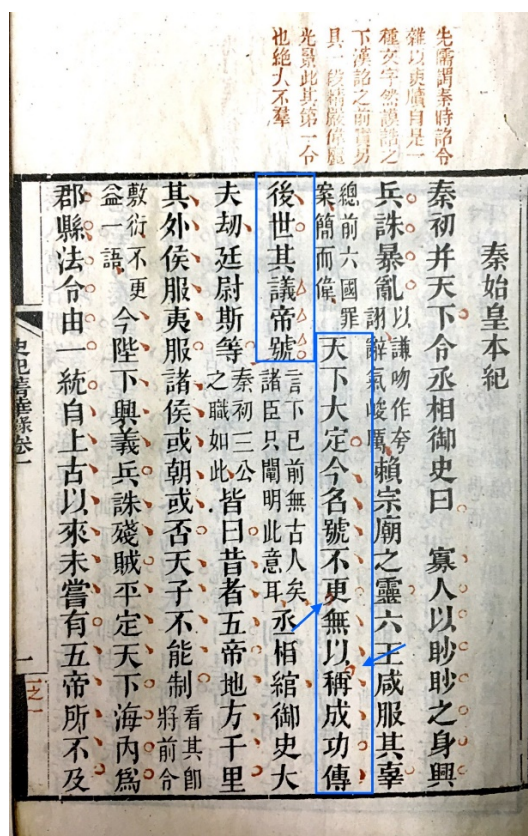 先儒謂秦時詔令
雜以吏牘自是一
種文字然謨誥之
下漢詔之前實另
具一段精嚴偉麗
光景此其第一令
也絕大不羣
秦始皇本紀
秦初并天下令丞相御史曰 寡人以眇眇之身興
兵誅暴亂以謙吻作夸詡辭氣峻厲賴宗廟之靈六王咸服其辜
總前六國罪案簡而偉天下大定今名號不更無以稱成功傳
後世其議帝號言下已前無古人矣諸臣只闡明此意耳丞相綰御史大
夫劫廷尉斯等秦初三公之職如此皆曰昔者五帝地方千里
其外侯服夷服諸侯或朝或否天子不能制看其卽將前令
敷衍不更益一語今陛下興義兵誅殘賊平定天下海內爲
郡縣法令由一統自上古以來未嘗有五帝所不及
史記菁華錄卷一 一